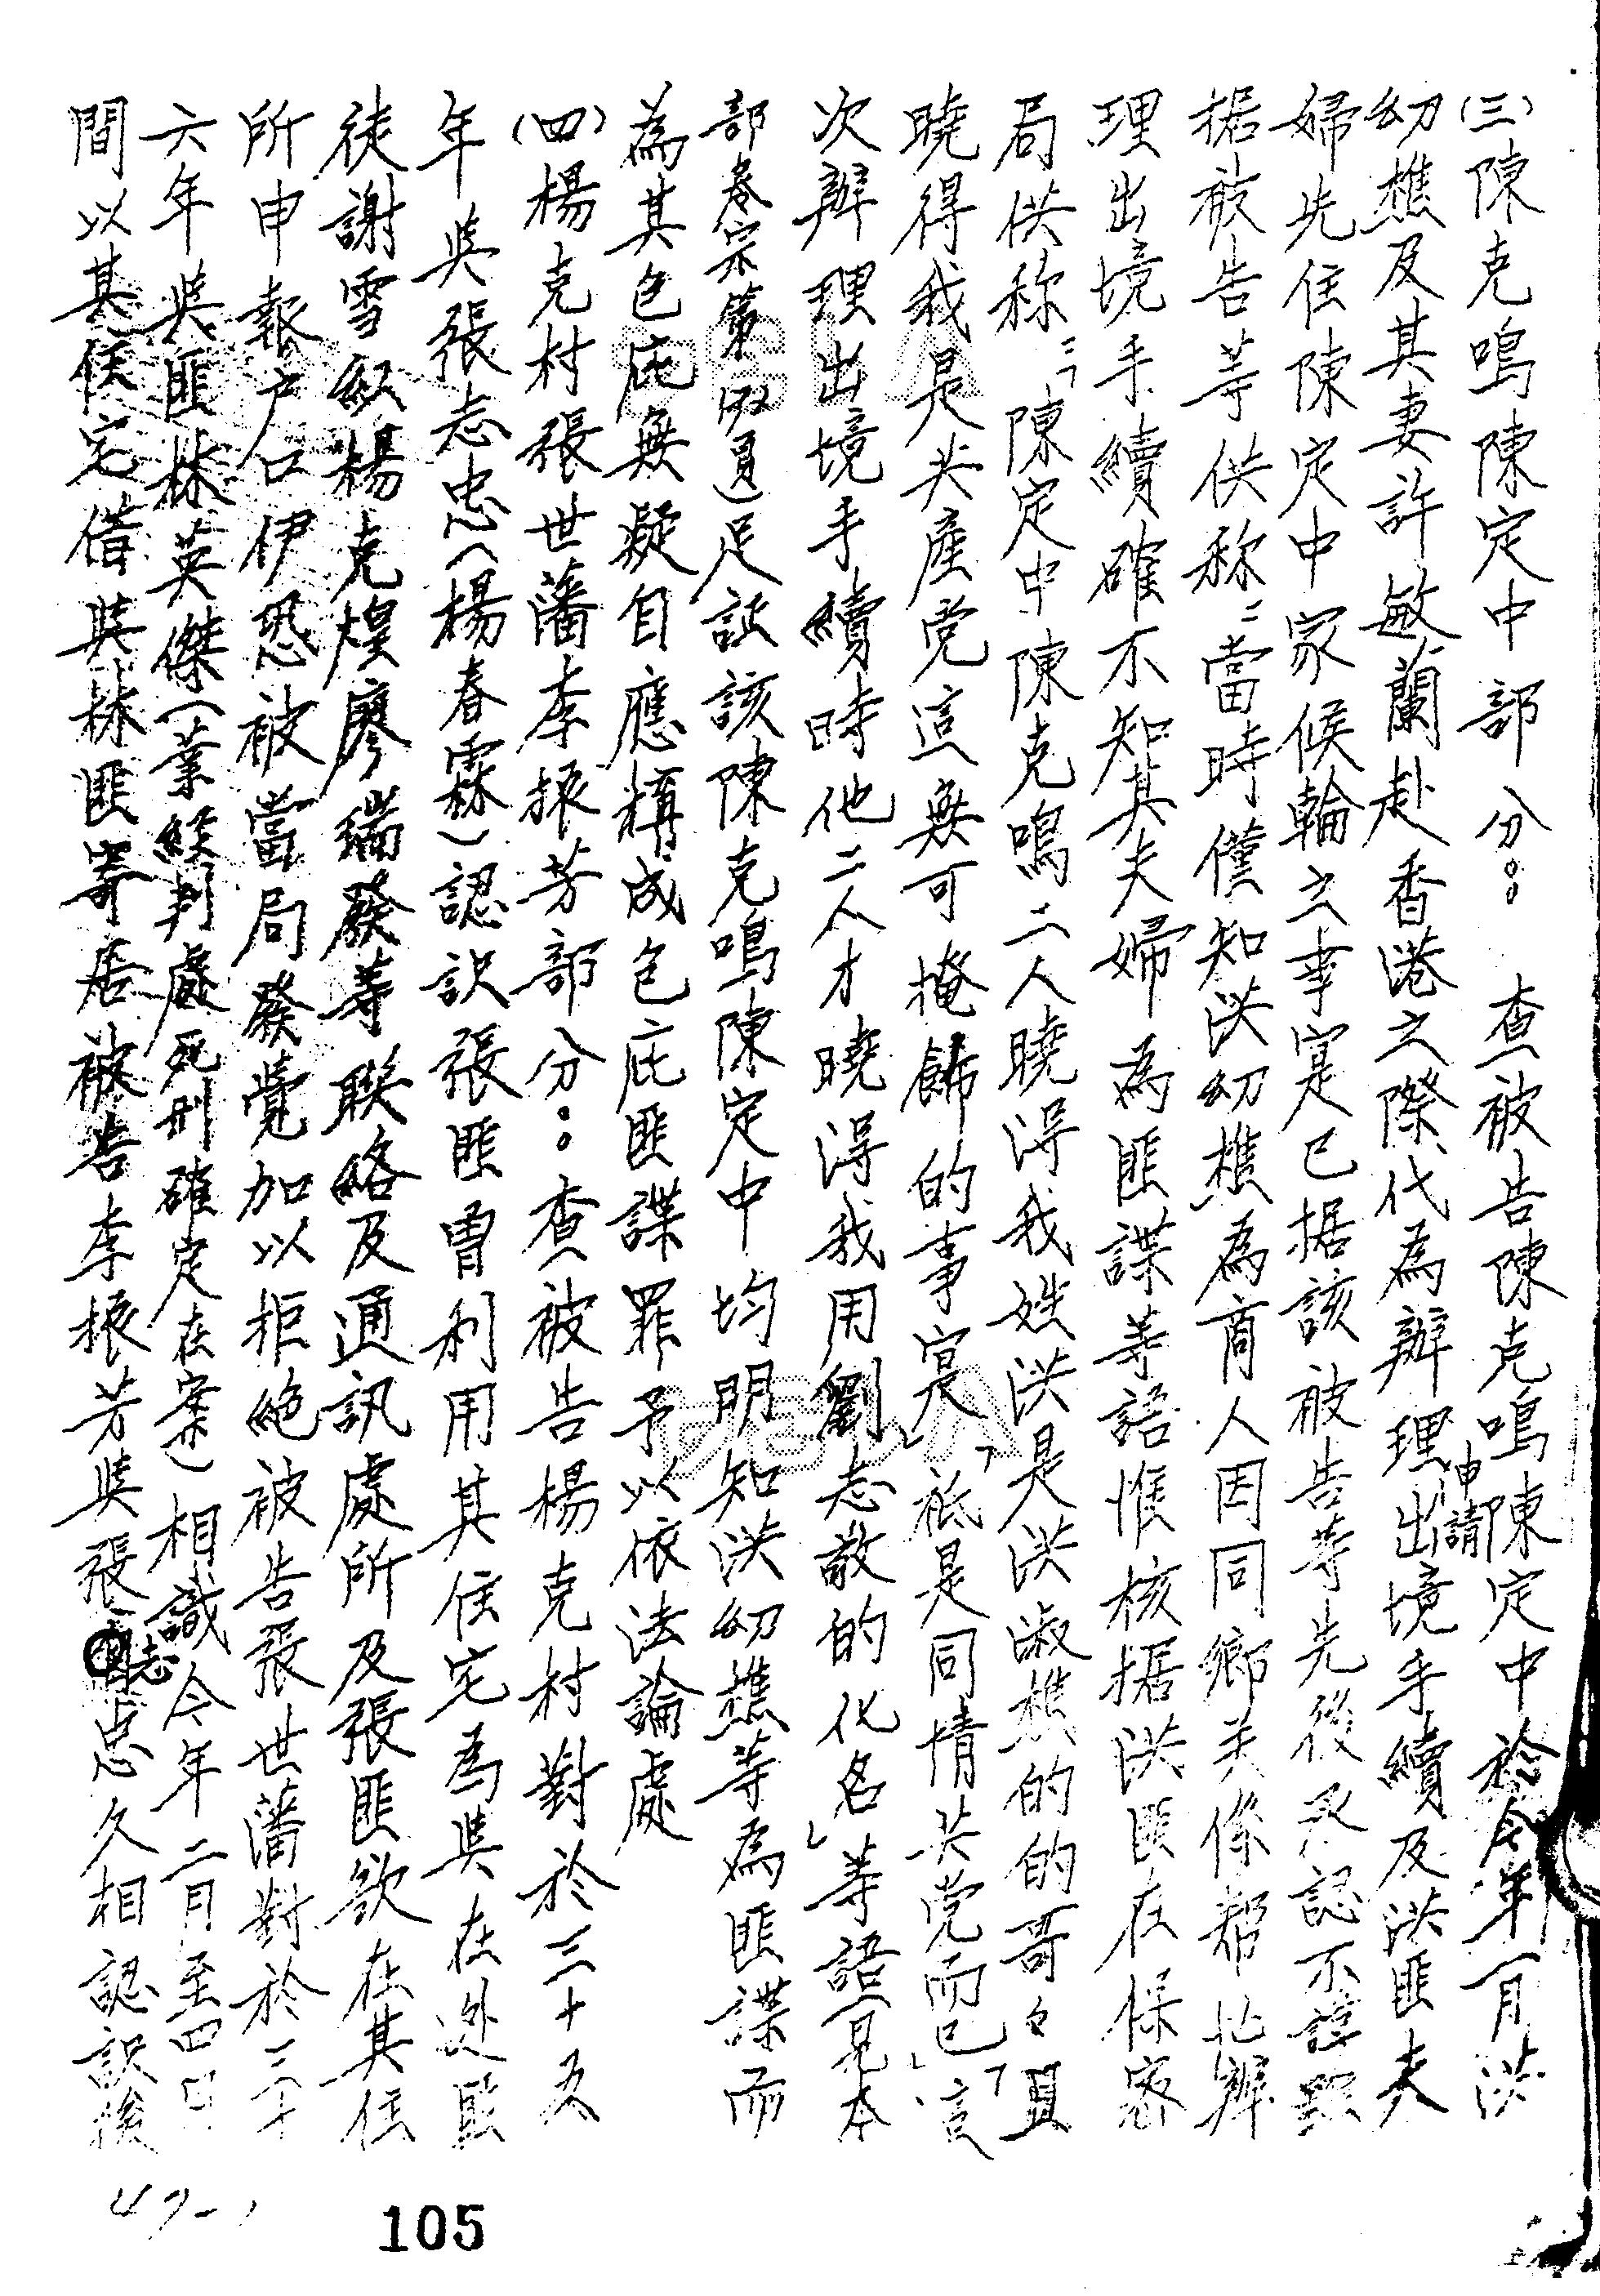 (三)陳克鳴陳定中部分：查被告陳克鳴陳定中於今年一月洪
幼樵及其妻許敏蘭赴香港之際代為辦理申請出境手續及洪匪夫
婦先住陳定中家候輪之事寔已据該被告等先後承認不諱
据被告等供称：當時僅知洪幼樵為商人因同鄉关係帮忙辦
理出境手續確不知其夫婦為匪諜等語惟核据洪匪在保密
局供称：「陳定中陳克鳴二人曉得我姓洪是洪淑樵的的哥々
曉得我是共產党這無可掩飾的事寔」「祇是同情共党而已」「這
次辦理出境手續時他二人才曉得我用劉志敬的化名」等語（見本
部卷宗第 頁）足証該陳克鳴陳定中均明知洪幼樵等為匪諜而
為其包庇無疑自應構成包庇匪諜罪予以依法論處
(四)楊克村張世藩李振芳部分：查被告楊克村對於三十五
年吳張志忠（楊春霖）認识張匪曾利用其住宅為吳在处匪
徒謝雪紅楊克煌廖瑞發等联络及通訊處所及張匪欲在其住
所申報户口伊恐被當局發覺加以拒絶被告張世藩對於三十
六年吳匪林英傑（業經判處死刑確定在案）相識今年二月至四月
間以其住宅借吳林匪寄居被告李振芳吳張志忠久相認识後
105